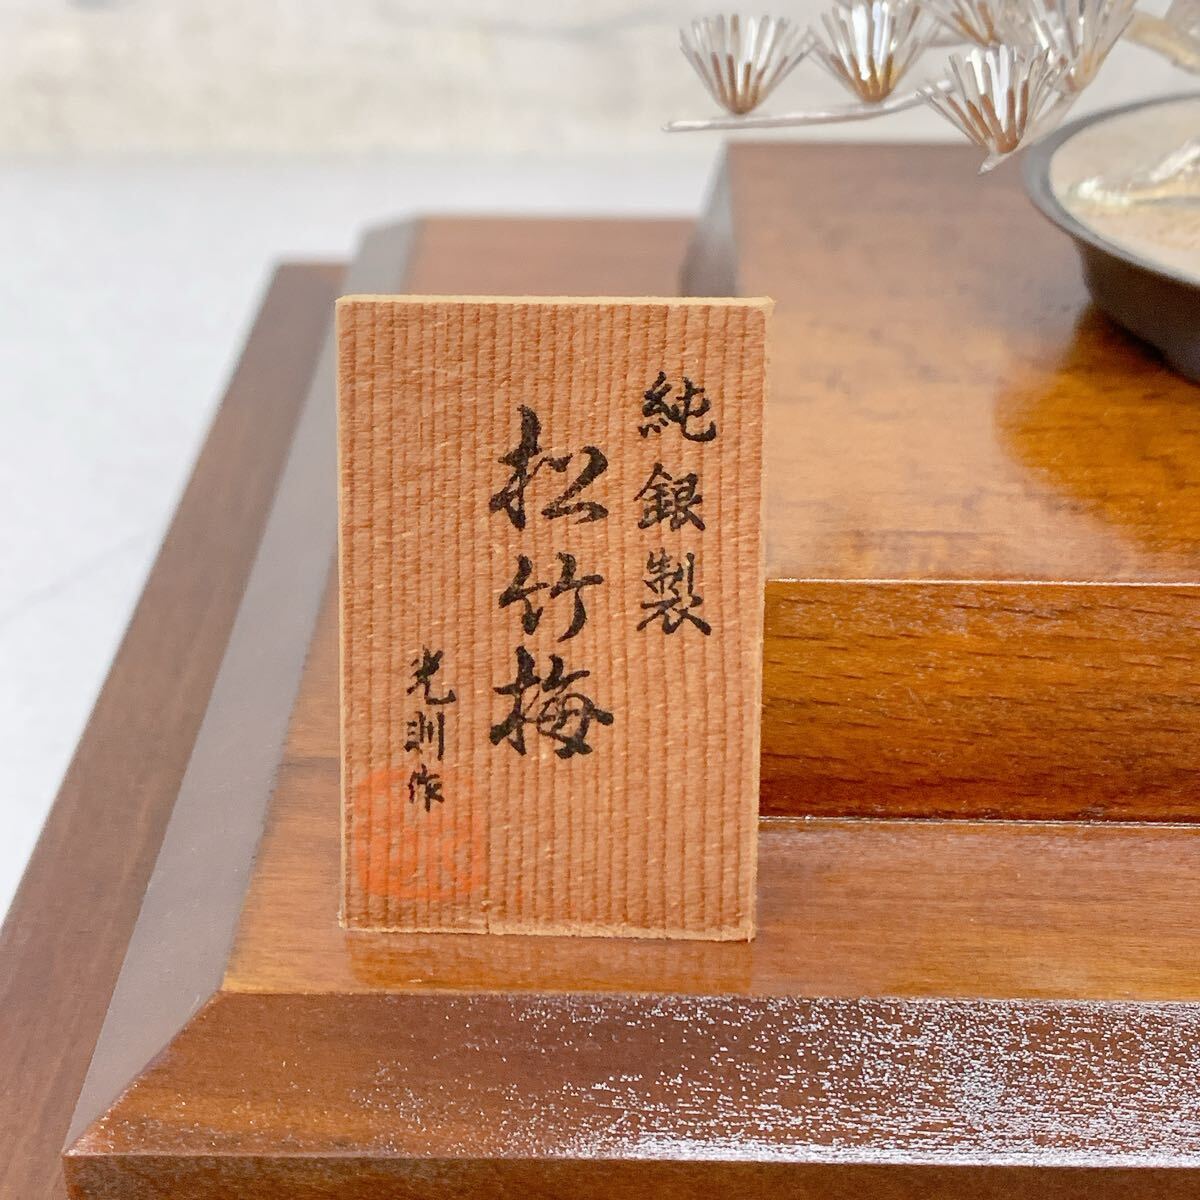 純銀製
松竹梅
光則作